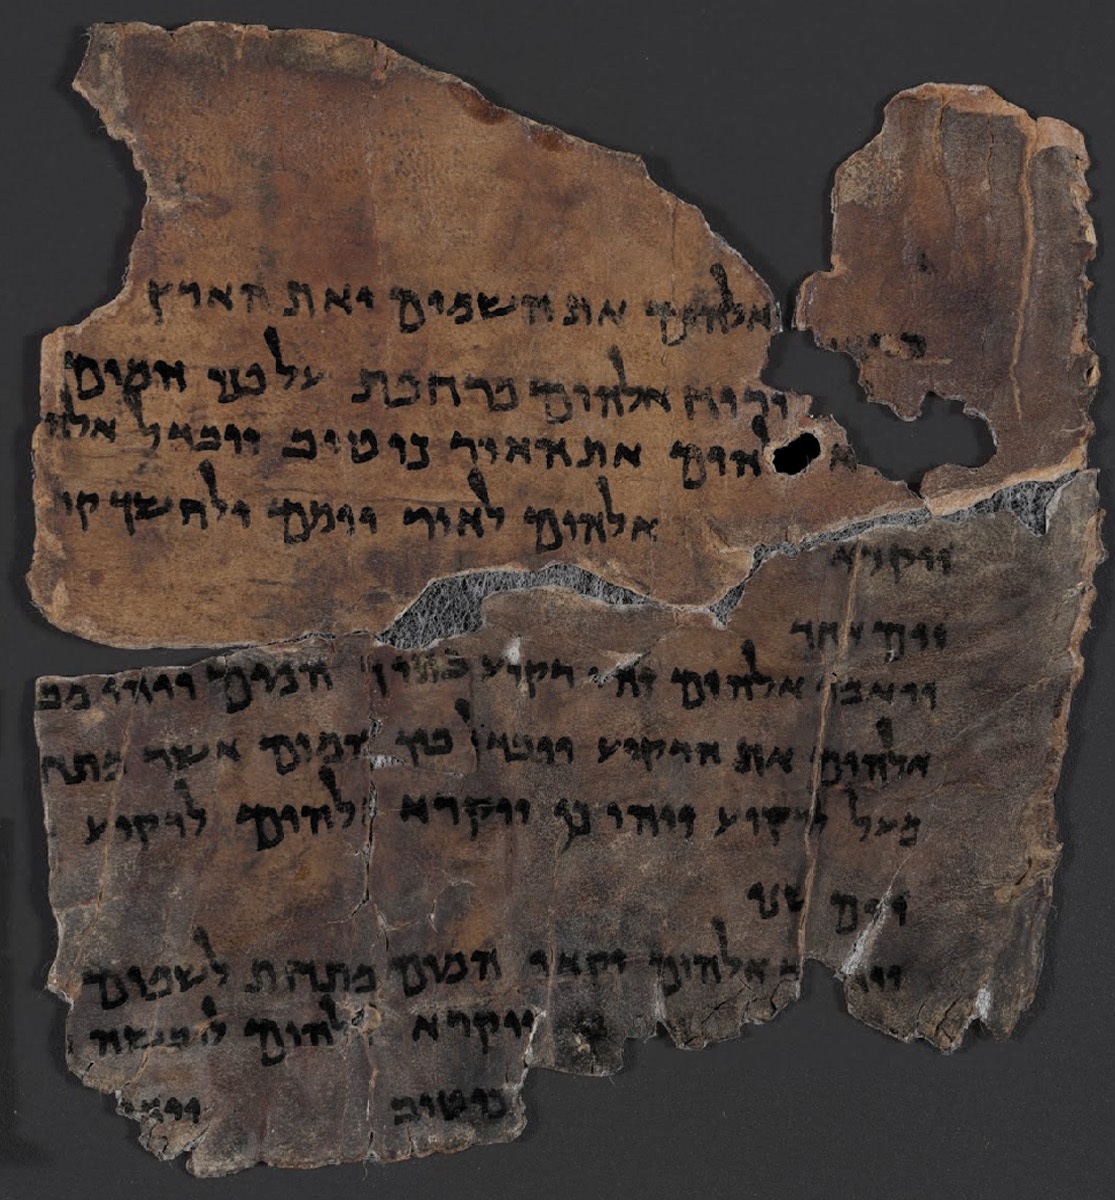 אלהים את השמים ואת הארץ
ורוח אלהים מרחפת על פני המים
אלהים את האור כי טוב ויבדל אלהי
ויקרא אלהים לאור יומם ולחשך קר
יום אחד
ויאמר אלהים יהי רקיע בתוך המים ויהי מב
אלהים את הרקיע ויבדל בין המים אשר מתח
מעל לרקיע ויהי כן ויקרא אלהים לרקיע
יום שני
ויאמר אלהים יקוו המים מתחת לשמים
ויקרא אלהים למקוה
כי טוב ויאמ